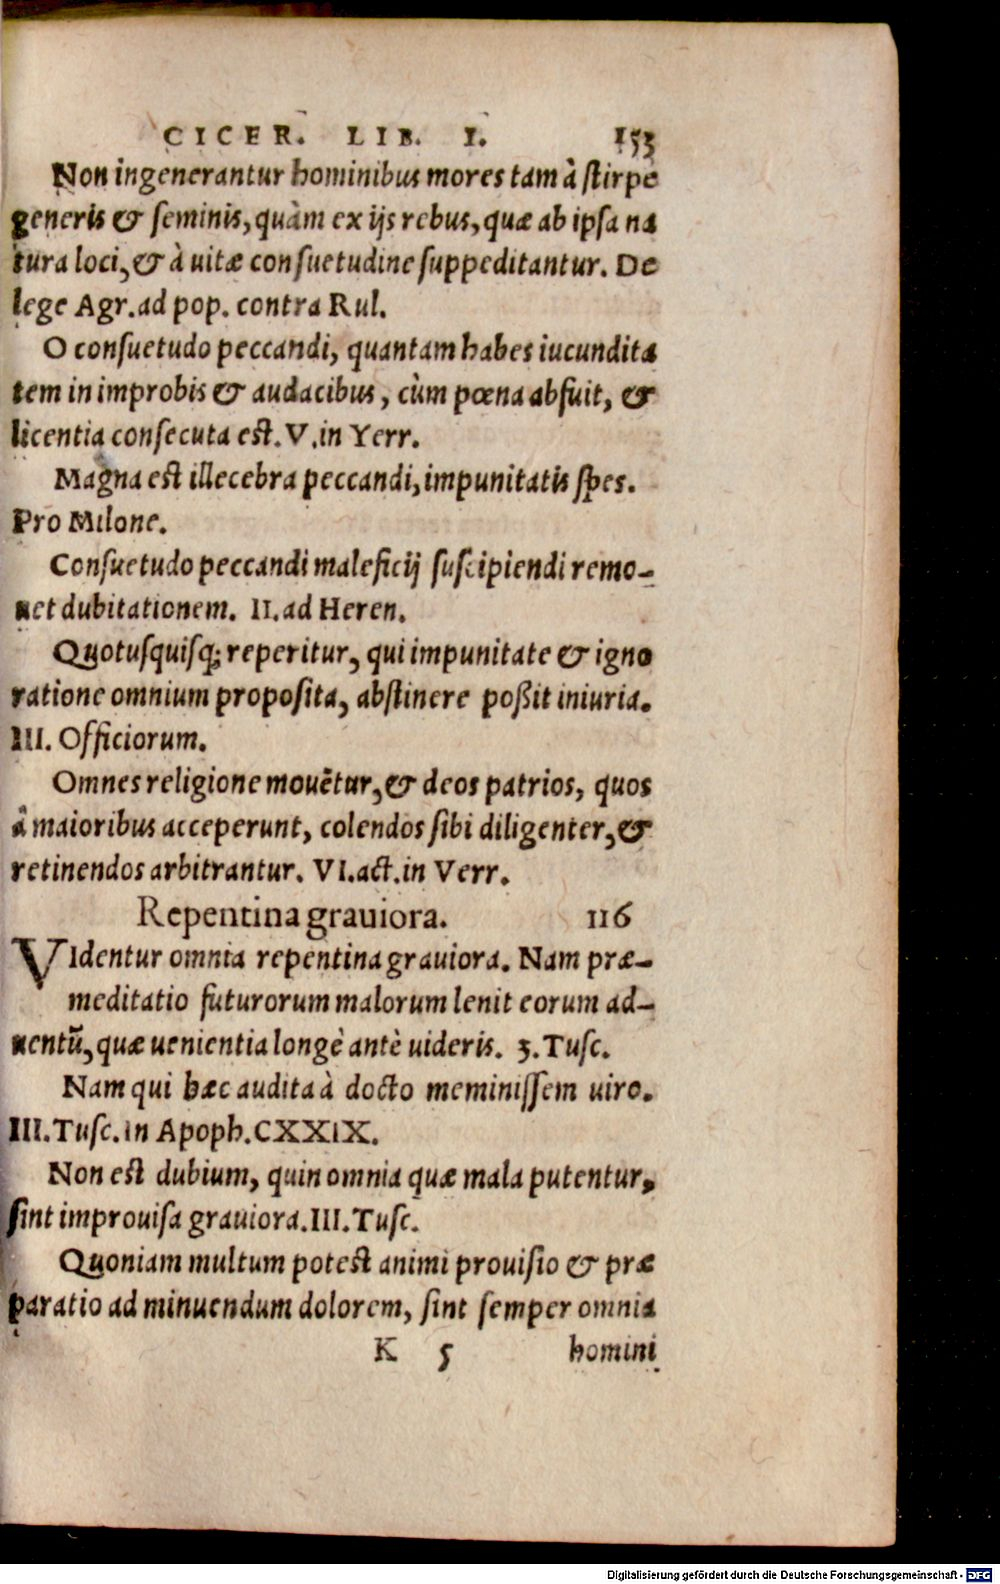 CICER. LIB. I. 153
Non ingenerantur hominibus mores tam à stirpe
generis & seminis, quàm ex ijs rebus, quæ ab ipsa na
tura loci, & à uitæ consuetudine suppeditantur. De
lege Agr. ad pop. contra Rul.
O consuetudo peccandi, quantam habes iucundita
tem in improbis & audacibus, cùm pœna abfuit, &
licentia consecuta est. V. in Yerr.
Magna est illecebra peccandi, impunitatis spes.
Pro Milone.
Consuetudo peccandi maleficij suscipiendi remo-
uet dubitationem. II. ad Heren.
Quotusquisq; reperitur, qui impunitate & igno
ratione omnium proposita, abstinere poßit iniuria.
III. Officiorum.
Omnes religione mouẽtur, & deos patrios, quos
â maioribus acceperunt, colendos sibi diligenter, &
retinendos arbitrantur. VI. act. in Verr.
Repentina grauiora. 116
VIdentur omnia repentina grauiora. Nam præ-
meditatio futurorum malorum lenit eorum ad-
uentũ, quæ uenientia longè antè uideris. 3. Tusc.
Nam qui hæc audita à docto meminissem uiro.
III. Tusc. in Apoph. CXXIX.
Non est dubium, quin omnia quæ mala putentur,
sint improuisa grauiora. III. Tusc.
Quoniam multum potest animi prouisio & præ
paratio ad minuendum dolorem, sint semper omnia
K 5 homini
Digitalisierung gefördert durch die Deutsche Forschungsgemeinschaft - DFG